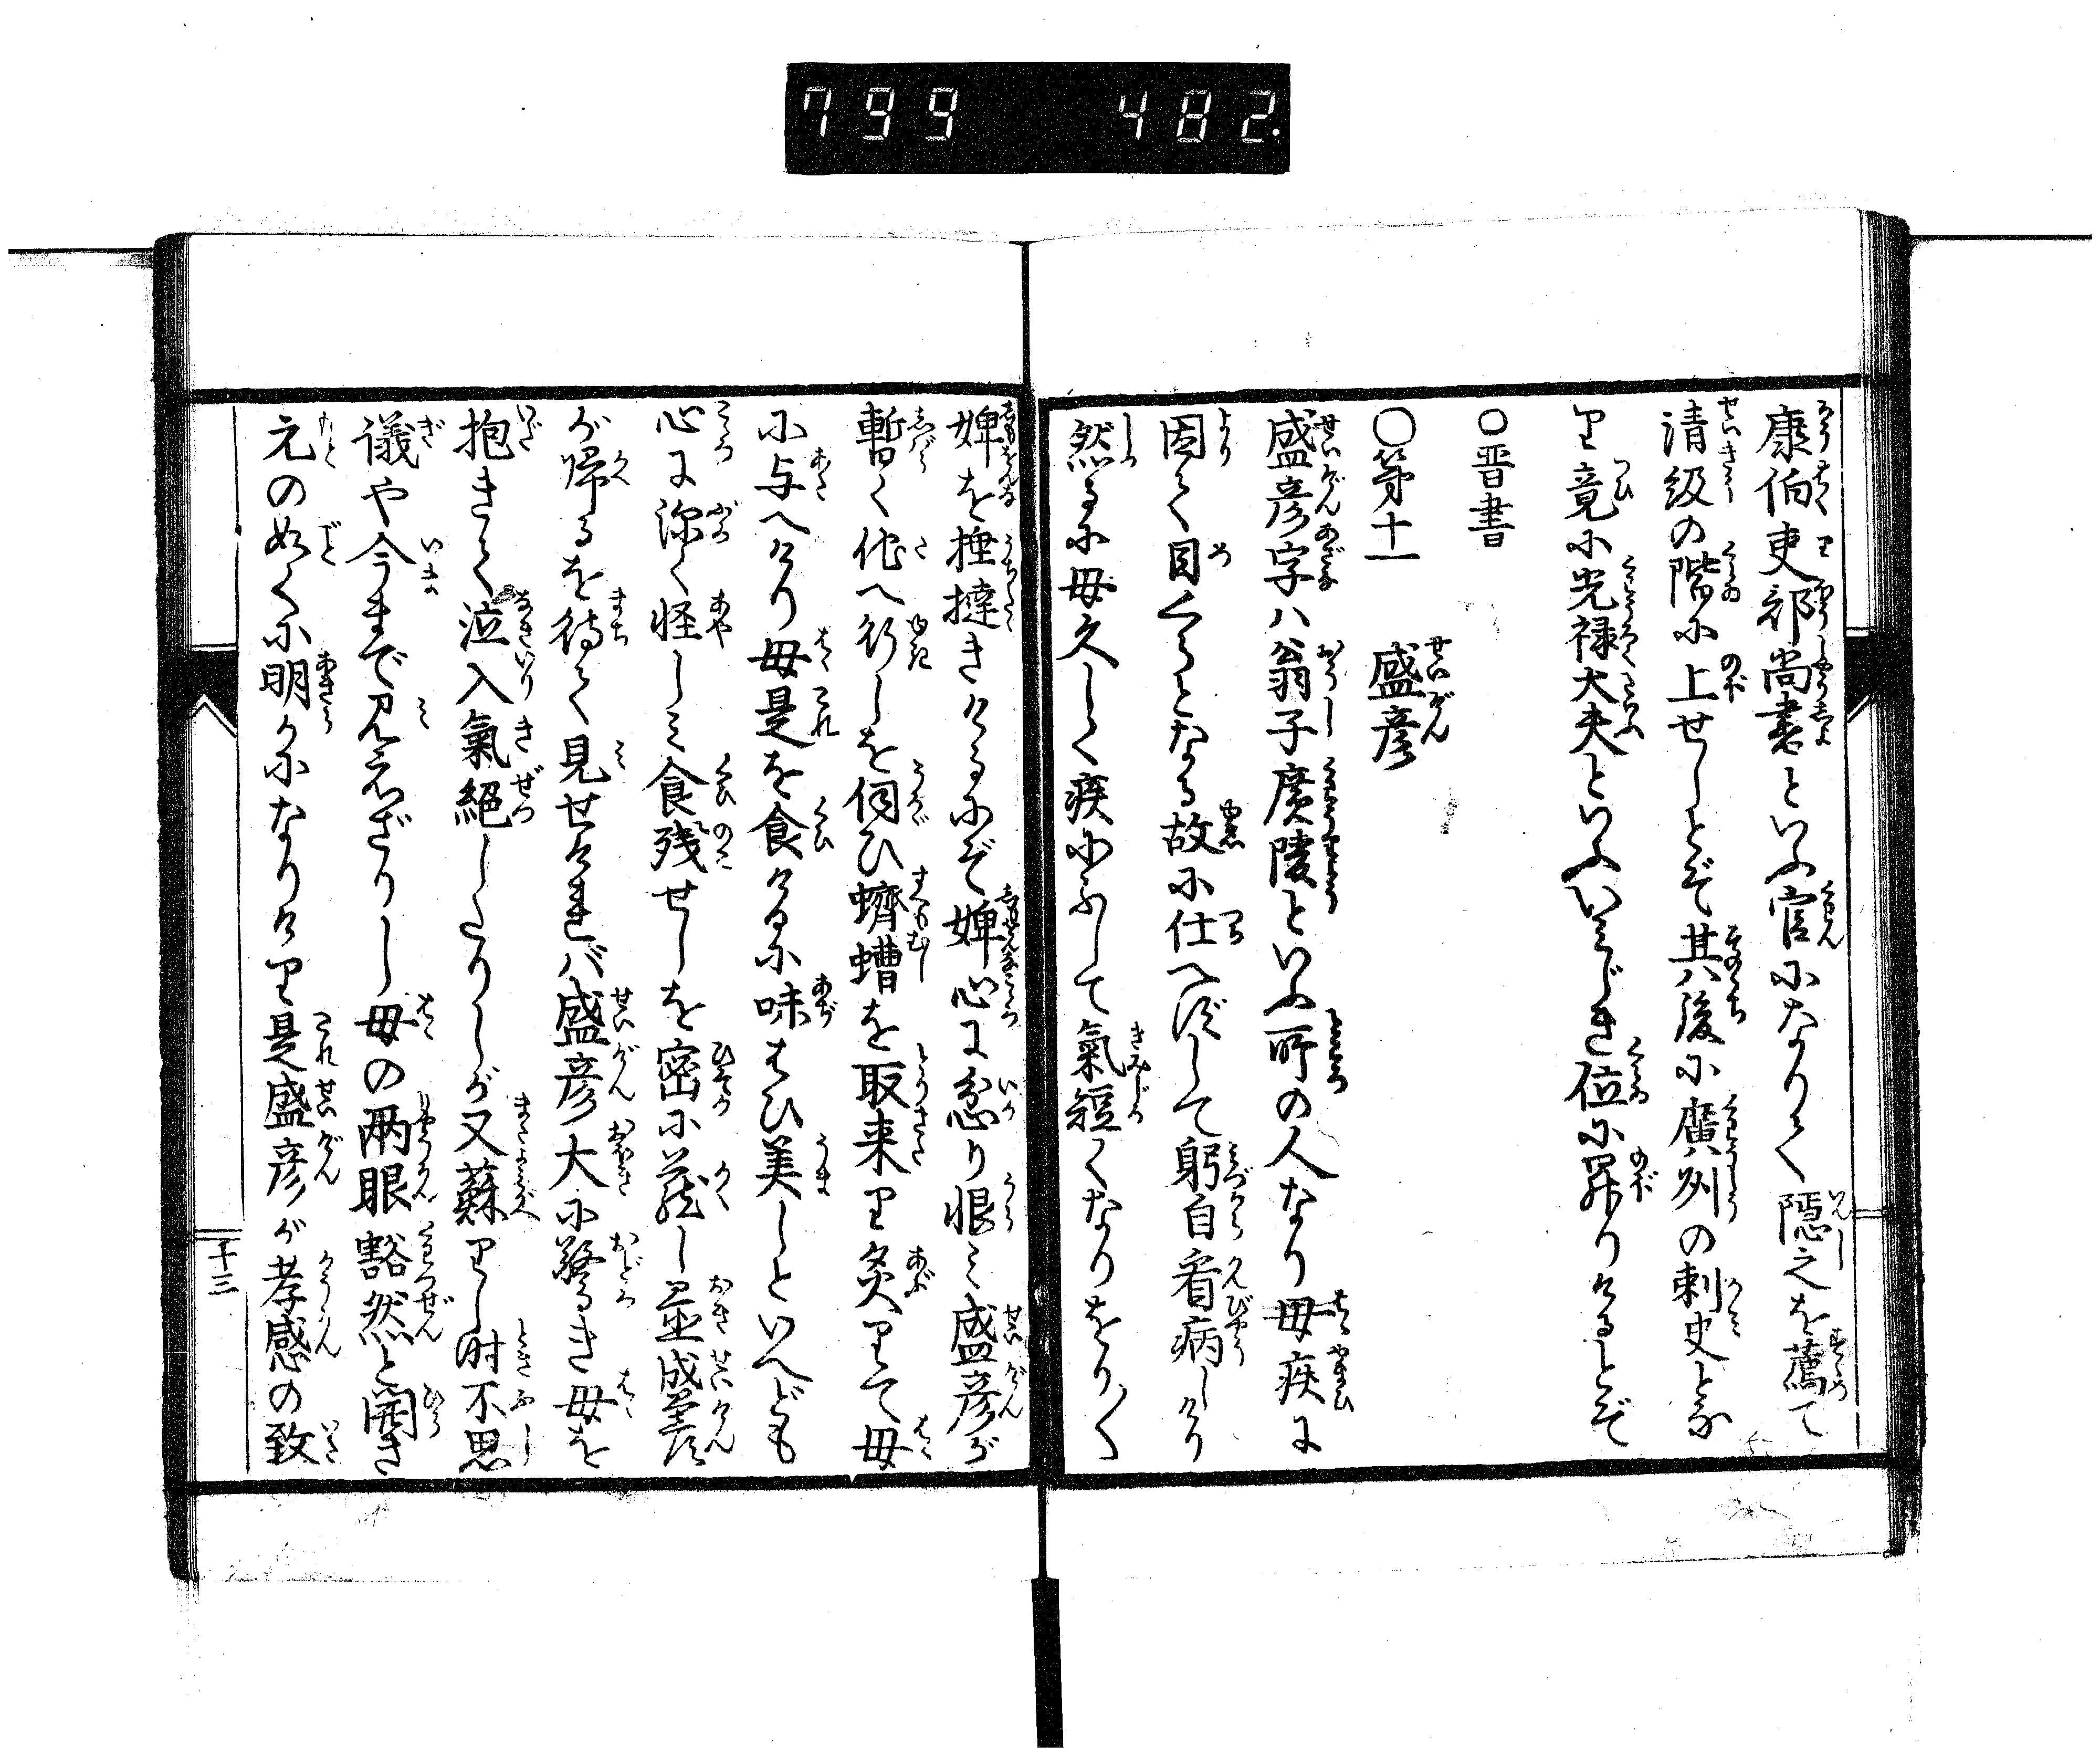 799 482.
康伯吏部尚書といふ官になりて隠之を薦て
清級の階に上せしとぞ其後に廣州の刺史とな
り竟に光禄大夫といふいみじき位に昇りけるとぞ
○晋書
○第十一 盛彦
盛彦字ハ翁子廣陵といふ所の人なり母疾に
因て目くらとなる故に仕へずして躬自看病しけり
然るに母久しく疾にふして氣短くなりをり〳〵
婢を捶撻きけるにぞ婢心に忿り恨ミ盛彦が
暫く他へ行しを伺ひ蠐螬を取来り炙りて母
に与へけり母是を食けるに味はひ美しといへども
心に深く怪しミ食残せしを密に蔵し置盛彦
が帰るを待て見せけれバ盛彦大に驚き母を
抱きて泣入氣絶したりしが又蘇りし时不思
議や今まで見えざりし母の両眼豁然と開き
元の如くに明かになりけり是盛彦が孝感の致
十三